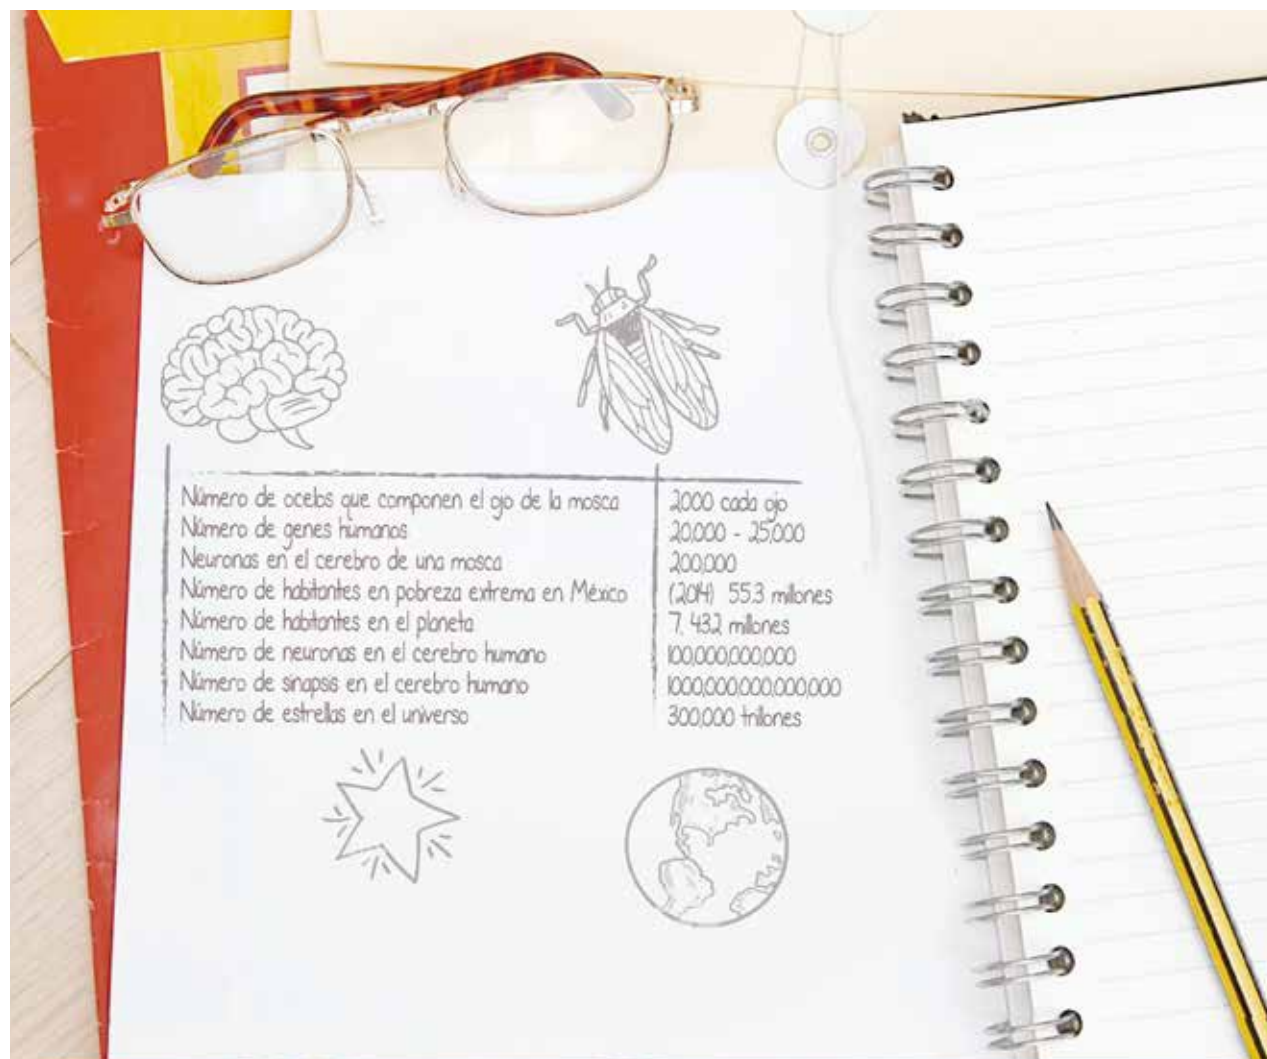 Número de ocelos que componen el ojo de la mosca 2000 cada ojo
Número de genes humanos 20,000 - 25,000
Neuronas en el cerebro de una mosca 200,000
Número de habitantes en pobreza extrema en México (2014) 55.3 millones
Número de habitantes en el planeta 7, 432 millones
Número de neuronas en el cerebro humano 100,000,000,000
Número de sinapsis en el cerebro humano 1000,000,000,000,000
Número de estrellas en el universo 300,000 trillones